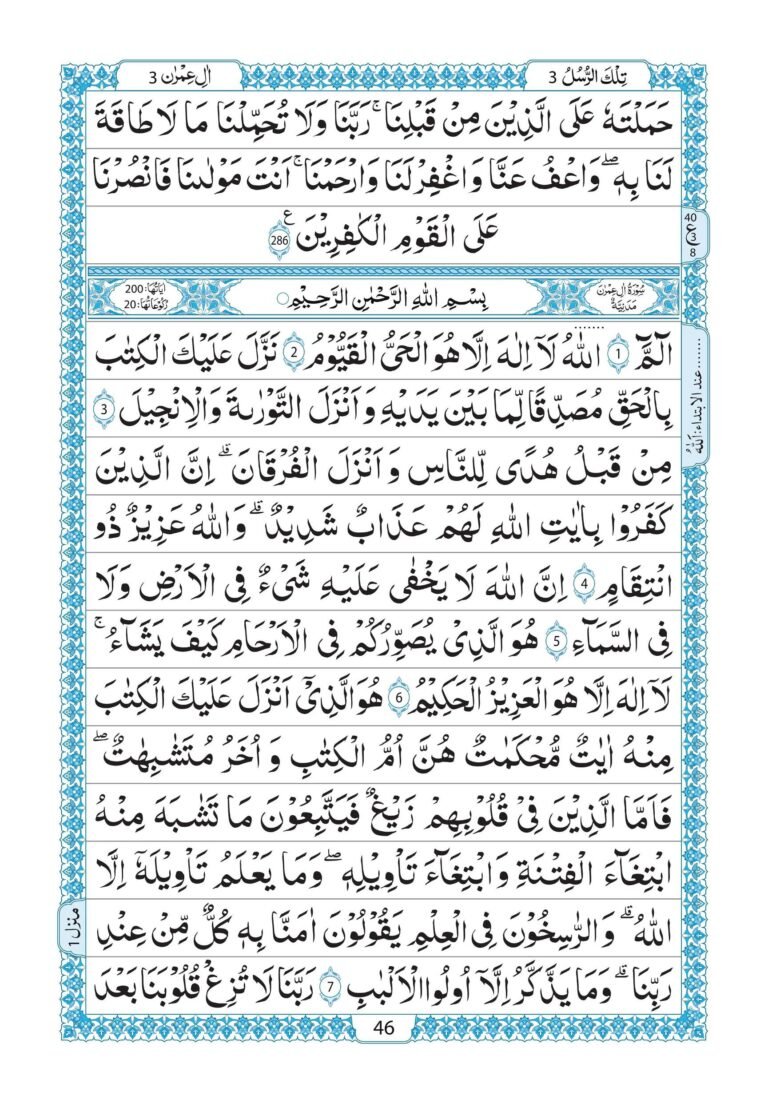 تِلْكَ الرُّسُلُ 3
اٰلِ عِمْرٰن 3
حَمَلْتَهٗ عَلَى الَّذِيْنَ مِنْ قَبْلِنَا ۚ رَبَّنَا وَلَا تُحَمِّلْنَا مَا لَا طَاقَةَ
لَنَا بِهٖ ۖ وَاعْفُ عَنَّا وَاغْفِرْ لَنَا وَارْحَمْنَا ۚ اَنْتَ مَوْلٰىنَا فَانْصُرْنَا
عَلَى الْقَوْمِ الْكٰفِرِيْنَ ع 286
40
ع
3
8
سُوْرَةُ اٰلِ عِمْرٰنَ
مَدَنِيَّةٌ
بِسْمِ اللهِ الرَّحْمٰنِ الرَّحِيْمِ
اٰيَاتُهَا: 200
رُكُوْعَاتُهَا: 20
الٓمّٓ 1 اللهُ لَاۤ اِلٰهَ اِلَّا هُوَ الْحَيُّ الْقَيُّوْمُ 2 نَزَّلَ عَلَيْكَ الْكِتٰبَ
بِالْحَقِّ مُصَدِّقًا لِّمَا بَيْنَ يَدَيْهِ وَاَنْزَلَ التَّوْرٰىةَ وَالْاِنْجِيْلَ 3
مِنْ قَبْلُ هُدًى لِّلنَّاسِ وَاَنْزَلَ الْفُرْقَانَ ۗ اِنَّ الَّذِيْنَ
كَفَرُوْا بِاٰيٰتِ اللهِ لَهُمْ عَذَابٌ شَدِيْدٌ ۗ وَاللهُ عَزِيْزٌ ذُو
انْتِقَامٍ 4 اِنَّ اللهَ لَا يَخْفٰى عَلَيْهِ شَيْءٌ فِي الْاَرْضِ وَلَا
فِي السَّمَآءِ 5 هُوَ الَّذِيْ يُصَوِّرُكُمْ فِي الْاَرْحَامِ كَيْفَ يَشَآءُ ۚ
لَاۤ اِلٰهَ اِلَّا هُوَ الْعَزِيْزُ الْحَكِيْمُ 6 هُوَ الَّذِيْۤ اَنْزَلَ عَلَيْكَ الْكِتٰبَ
مِنْهُ اٰيٰتٌ مُّحْكَمٰتٌ هُنَّ اُمُّ الْكِتٰبِ وَاُخَرُ مُتَشٰبِهٰتٌ ۖ
فَاَمَّا الَّذِيْنَ فِيْ قُلُوْبِهِمْ زَيْغٌ فَيَتَّبِعُوْنَ مَا تَشَابَهَ مِنْهُ
ابْتِغَآءَ الْفِتْنَةِ وَابْتِغَآءَ تَاْوِيْلِهٖ ۖ وَمَا يَعْلَمُ تَاْوِيْلَهٗۤ اِلَّا
اللهُ ۗ وَالرّٰسِخُوْنَ فِي الْعِلْمِ يَقُوْلُوْنَ اٰمَنَّا بِهٖ كُلٌّ مِّنْ عِنْدِ
رَبِّنَا ۗ وَمَا يَذَّكَّرُ اِلَّاۤ اُولُوا الْاَلْبَابِ 7 رَبَّنَا لَا تُزِغْ قُلُوْبَنَا بَعْدَ
عند الابتداء: اَللهُ
منزل 1
46